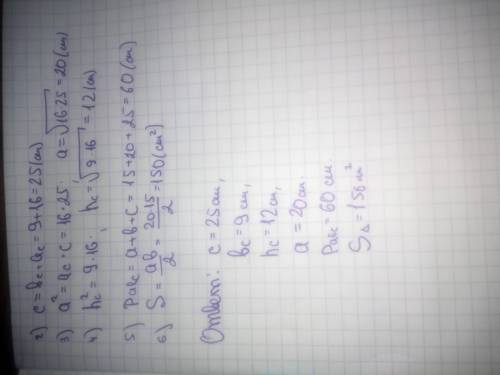 2) c = bc + ac = 9+16 = 25 (см)
3) a² = ac · c = 16·25. a = √16·25 = 20 (см)
4) hc² = 9·16; hc = √9·16 = 12 (см)
5) Pавс = a+b+c = 15+20+25 = 60 (см)
6) S = ab/2 = 20·15/2 = 150 (см²)
Ответ: c = 25 см,
bc = 9 см,
hc = 12 см,
a = 20 см.
Pавс = 60 см.
SΔ = 150 м²